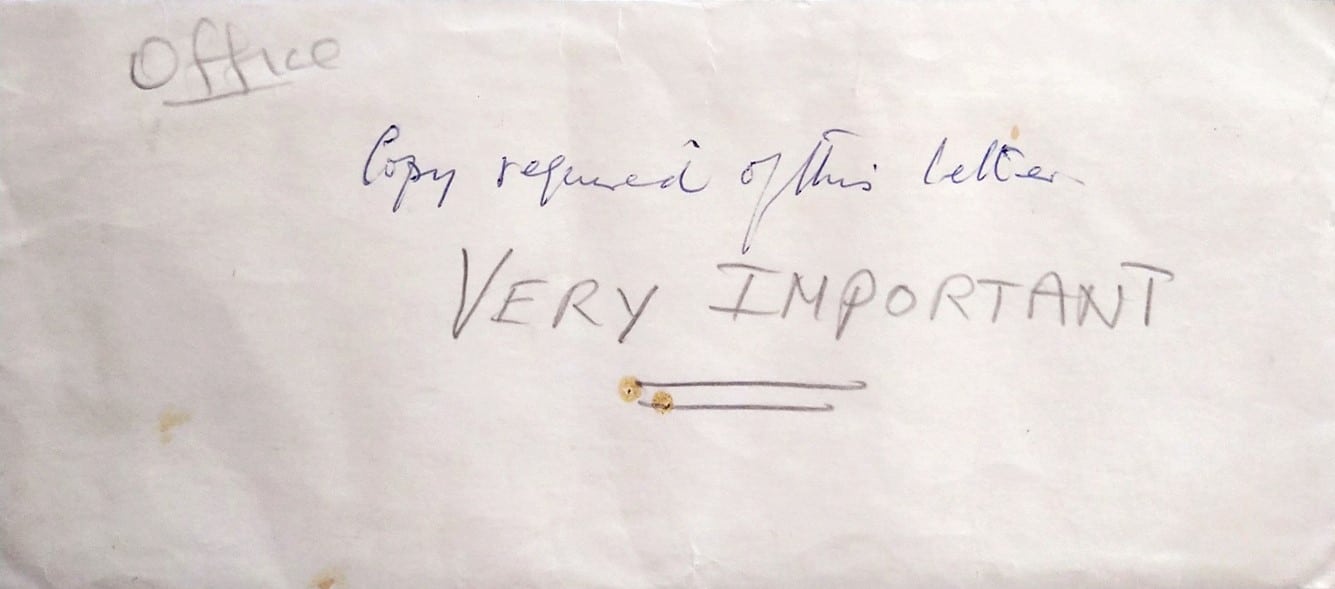 Office
Copy required of this letter
VERY IMPORTANT